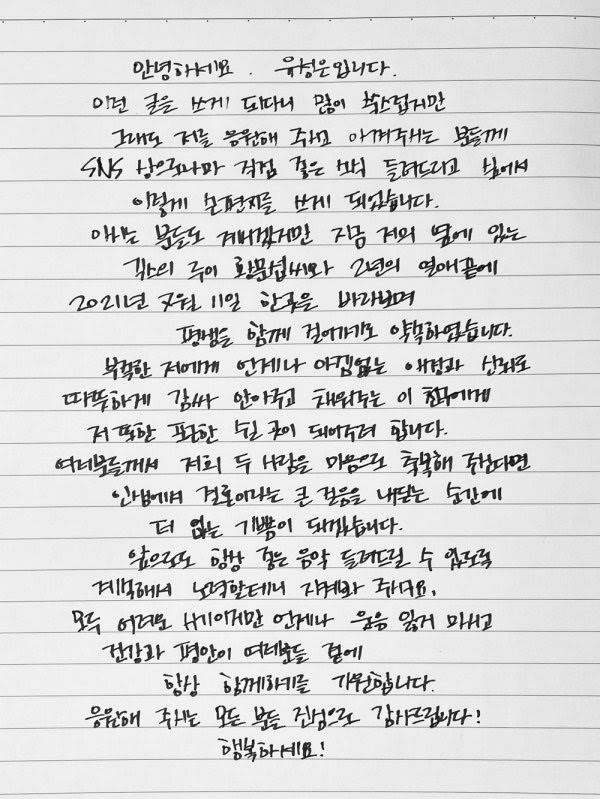 안녕하세요. 유성은입니다.
이런 글을 쓰게 되다니 많이 쑥스럽지만
그래도 저를 응원해 주시고 아껴주시는 분들께
SNS 상으로나마 직접 좋은 소식 들려드리고 싶어서
이렇게 손편지를 쓰게 되었습니다.
아시는 분들도 계시겠지만 지금 저의 옆에 있는
긱스의 루이 황문섭씨와 2년의 연애끝에
2021년 7월 11일 한곳을 바라보며
평생을 함께 걸어가기로 약속하였습니다.
부족한 저에게 언제나 아낌없는 애정과 신뢰로
따뜻하게 감싸 안아주고 채워주는 이 친구에게
저 또한 편안한 쉴 곳이 되어주려 합니다.
여러분들께서 저희 두 사람을 마음으로 축복해 주신다면
인생에서 결혼이라는 큰 걸음을 내딛는 순간에
더 없는 기쁨이 되겠습니다.
앞으로도 항상 좋은 음악 들려드릴 수 있도록
계속해서 노력할테니 지켜봐 주세요.
모두 어려운 시기이지만 언제나 웃음 잃지 마시고
건강과 평안이 여러분들 곁에
항상 함께하기를 기원합니다.
응원해 주시는 모든 분들 진심으로 감사드립니다!
행복하세요!